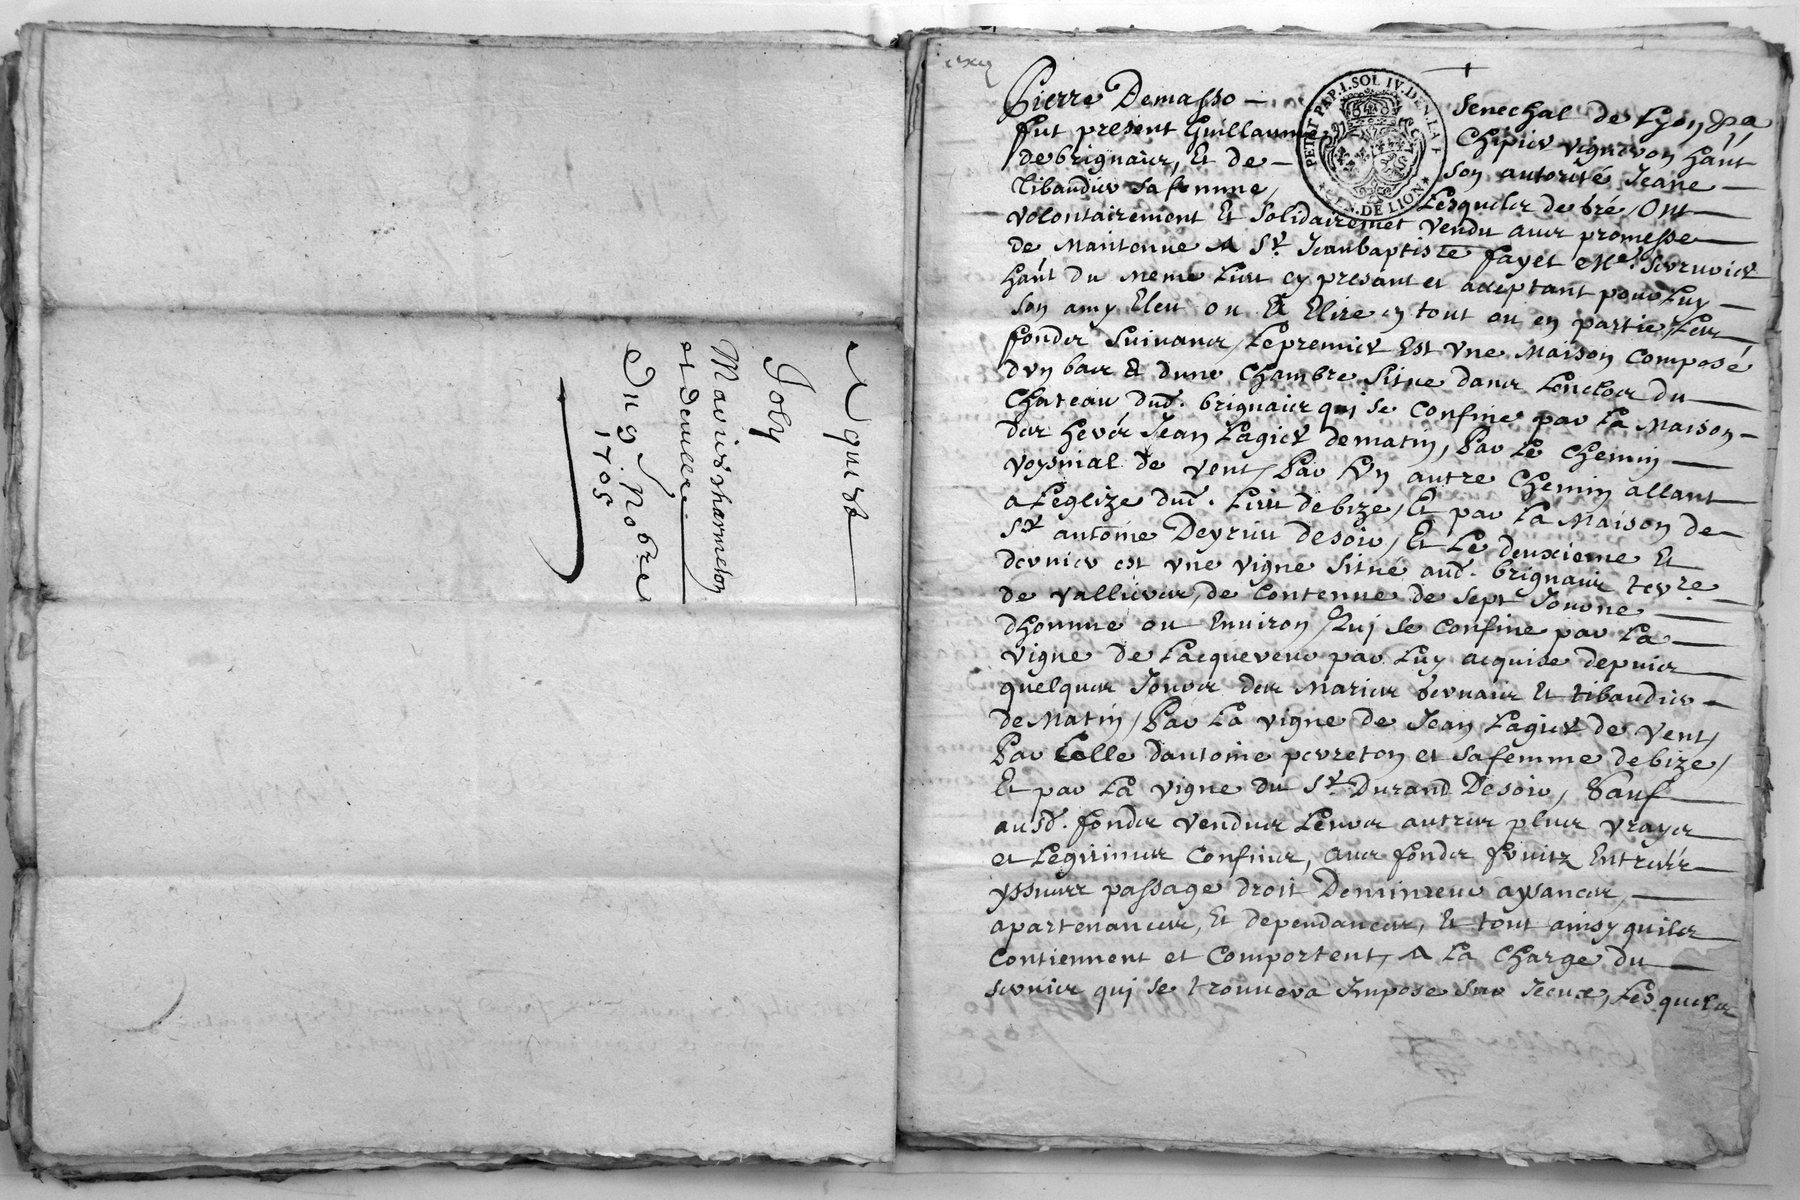 Aquist
Joly
Mavie charmeton
et demelle
Du 9 Nobre
1705
PETIT PAP. I. SOL IV. DEN. LA F
GEN. DE LION
Pierre Demasso Senechal de Lyon
fut present Guillaume Chipier vigneron hãnt
de brignair, Et de son autorité Jeane
Tibaudier sa femme, Lesqueler de gré, Ont
volontairement Et Solidairemet vendu avec promesse
de Maintenue A Sr. Jeanbaptiste fayet Me. Serruvier
hãnt du Meme Lieu cy present et aceptant pour Luy
son amy Eleu ou A Elire en tout ou en partie, Leur
fonder Suivancer, Le premier Est Vne Maison Composé
dvn bacr & dune Chambre Sitüe dancr Lencloer du
Chateau dud. brignaier qui se Confine par La Maison
der hevér Jean Lagier dematin, Par Le Chemin
voysinial de vent, Par Vn autre Chemin allant
a Leglize dud. Lieu debize, Et par La Maison de
Sr antoine Deyrieu desoir, Et Le deuxieme Et
dernier est vne vigne Sitüé aud. brignair terre
de valliever, de Contenue de Sept Journe
dhomme ou Environ, Qui se Confine par La
vigne de Lacquereur par Luy acquise depuier
quelquer Jourer der Marier Bernair Et tibaudier
de Matin, Par La vigne de Jean Lagier de vent,
Par Celle dantoine perreton et sa femme debize,
Et par La vigne du Sr. Durand Desoir, Sauf
ausd. fonder venduer Leurer autrer pluer vrayer
et Legitimer Confiner, avec fonder fruitz Entréer
yssuer passage droit Deminreur aysancer,
apartenancer, Et dependancer, Et tout ainsy quiler
Contiennent et Comportent, A La Charge du
servier qui se trouvera Impose Sur Iceux, Lesqueler